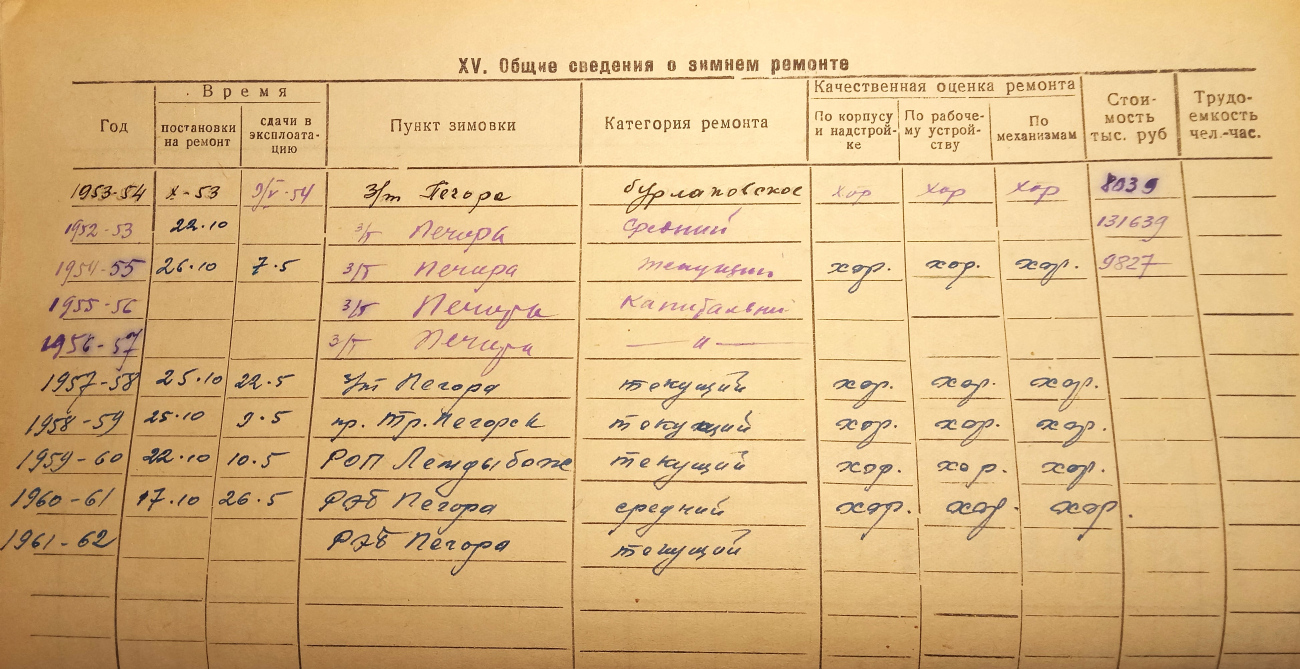 XV. Общие сведения о зимнем ремонте
Год
Время
постановки на ремонт
сдачи в эксплоата-
цию
Пункт зимовки
Категория ремонта
Качественная оценка ремонта
По корпусу
и надстрой-
ке
По рабоче-
му устрой-
ству
По
механизмам
Стои-
мость
тыс. руб
Трудо-
емкость
чел.-час.
1953-54 X-53 9/V-54 З/т Печора бурлаковское хор хор хор 8039
1952-53 22.10 з/т Печора Средний 131639
1954-55 26.10 7.5 з/т Печора Текущий хор. хор. хор. 9827
1955-56 з/т Печора Капитальный
1956-57 з/т Печора — " —
1957-58 25.10 22.5 з/т Печора текущий хор. хор. хор.
1958-59 25.10 9.5 пр. Тр. Печорск текущий хор. хор. хор.
1959-60 22.10 10.5 РОП текущий хор. хор. хор.
1960-61 17.10 26.5 РЭБ Печора средний хор. хор. хор.
1961-62 РЭБ Печора текущий